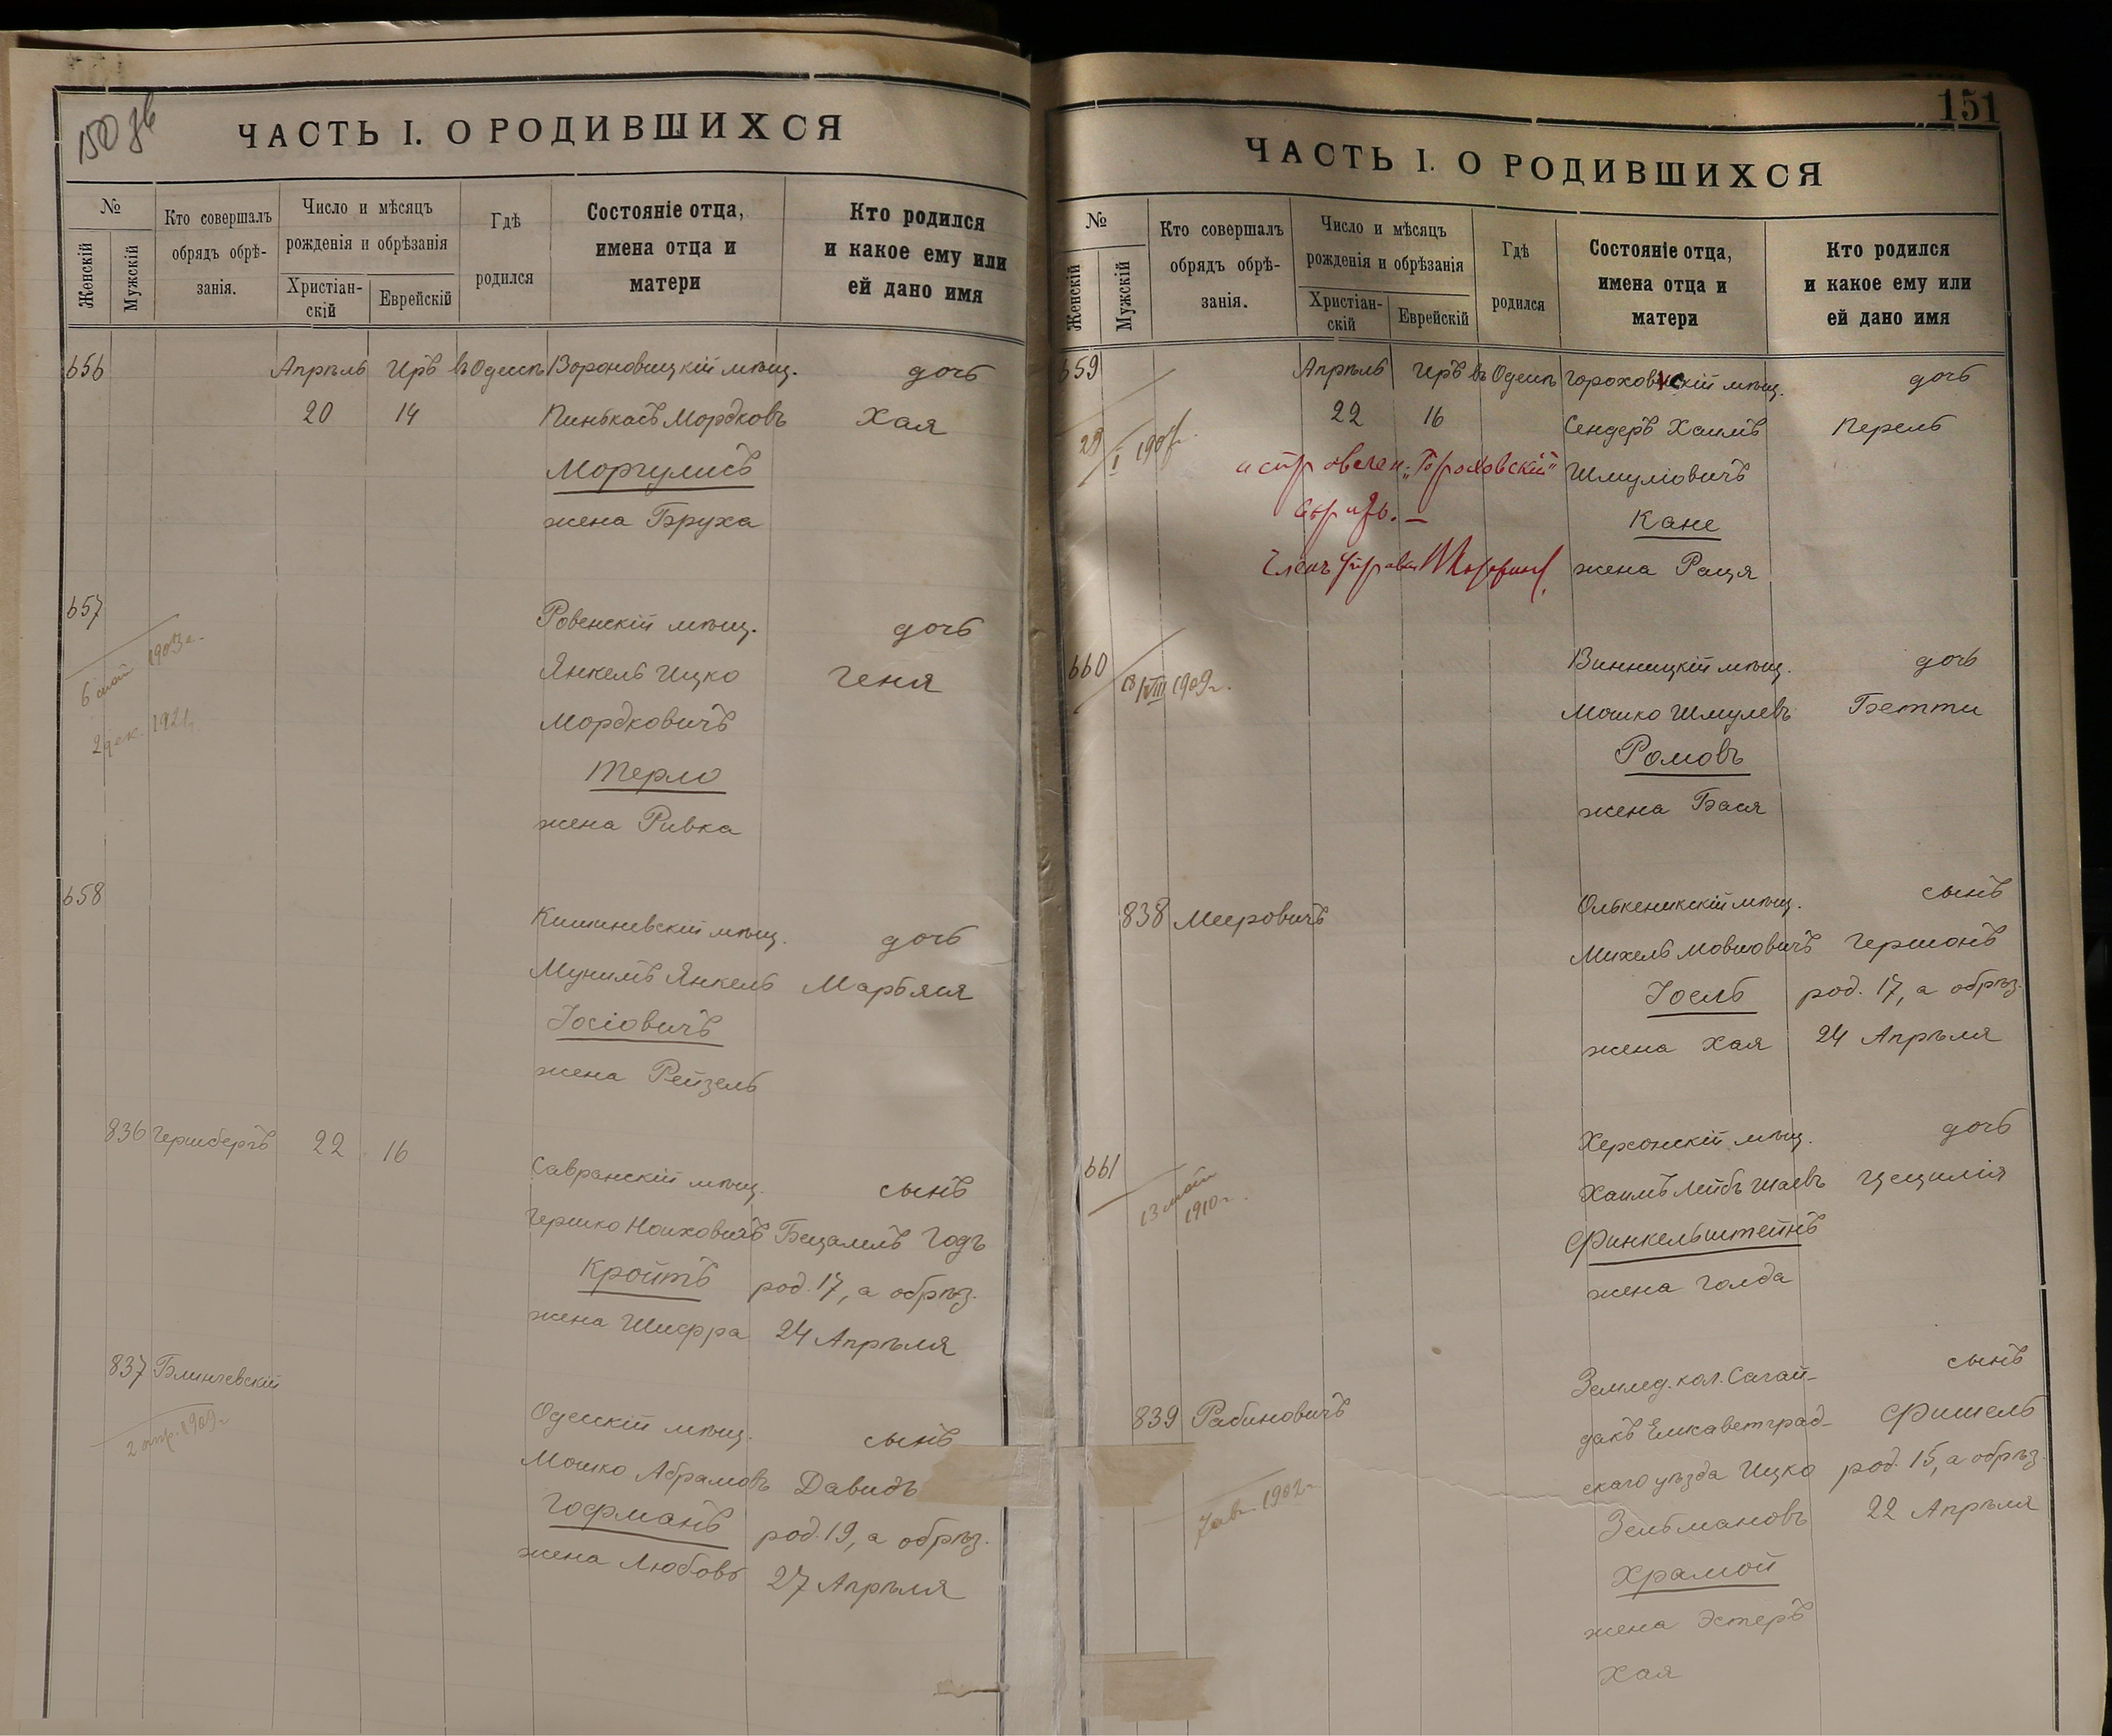 ЧАСТЬ I. О РОДИВШИХСЯ
№
Женскій
Мужскій
Кто совершалъ
обрядъ обрѣ-
занія.
Число и мѣсяцъ
рожденія и обрѣзанія
Христіан-
скій
Еврейскій
Гдѣ
родился
Состояніе отца,
имена отца и
матери
Кто родился
и какое ему или
ей дано имя
656 Апрѣль Иръ въ Одессѣ Вороновицкій мѣщ. дочь
20 14 Пинькасъ Мордковъ Хая
Моргулисъ
жена Бруха
657 Ровенскій мѣщ. дочь
6 май 1903 г.
Янкель Ицко Геня
2 дек. 1921
Мордковичъ
Терло
жена Ривка
658 Кишиневскій мѣщ. дочь
Мунимъ Янкель Марьяся
Іосіовичъ
жена Рейзель
836 Гершбергъ 22 16 Савранскій мѣщ. сынъ
Гершко Ноиховичъ Бецалель Годъ
Кройтъ род. 17, а обрѣз.
жена Шифра 24 Апрѣля
837 Блинчевскій Одесскій мѣщ. сынъ
1909 г.
Мошко Абрамовъ Давидъ
Гофманъ род. 19, а обрѣз.
жена Любовь 27 Апрѣля
151
ЧАСТЬ I. О РОДИВШИХСЯ
№
Женскій
Мужскій
Кто совершалъ
обрядъ обрѣ-
занія.
Число и мѣсяцъ
рожденія и обрѣзанія
Христіан-
скій
Еврейскій
Гдѣ
родился
Состояніе отца,
имена отца и
матери
Кто родился
и какое ему или
ей дано имя
659 Апрѣль Иръ въ Одессѣ Гороховскій мѣщ. дочь
22 16 Сендеръ Хаимъ Перель
29/I
Шмуліовичъ
Кане
жена Рація
660 Винницкій мѣщ. дочь
18/VIII 1909 г.
Мошко Шмулевъ Бетти
Ромовъ
жена Бася
838 Мееровичъ Олькеникскій мѣщ. сынъ
Михель Мовшовичъ Гершонъ
Іоель род. 17, а обрѣз.
жена Хая 24 Апрѣля
661 Херсонскій мѣщ. дочь
13 май
1910 г.
Хаимъ Лейбъ Шаевъ Цецилія
Финкельштейнъ
жена Голда
839 Рабиновичъ Землед. кол. Сагай- сынъ
дакъ Елисаветград- Фишель
скаго уѣзда Ицко род. 15, а обрѣз.
1902 г.
Зельмановъ 22 Апрѣля
Храмой
жена Эстеръ
Хая